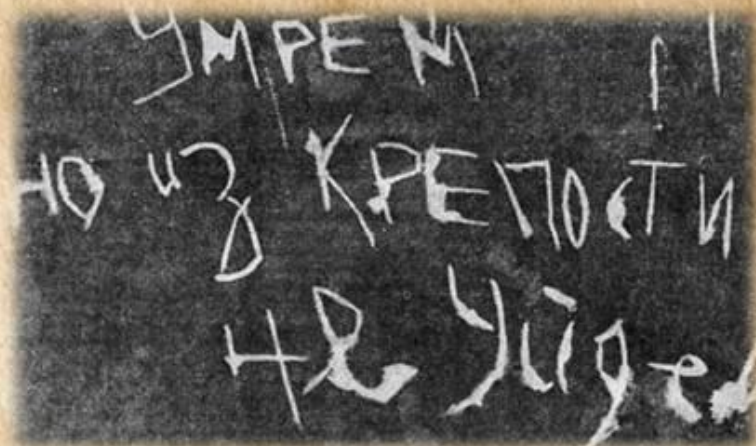 УМРЕМ
НО ИЗ КРЕПОСТИ
НЕ Уйдем